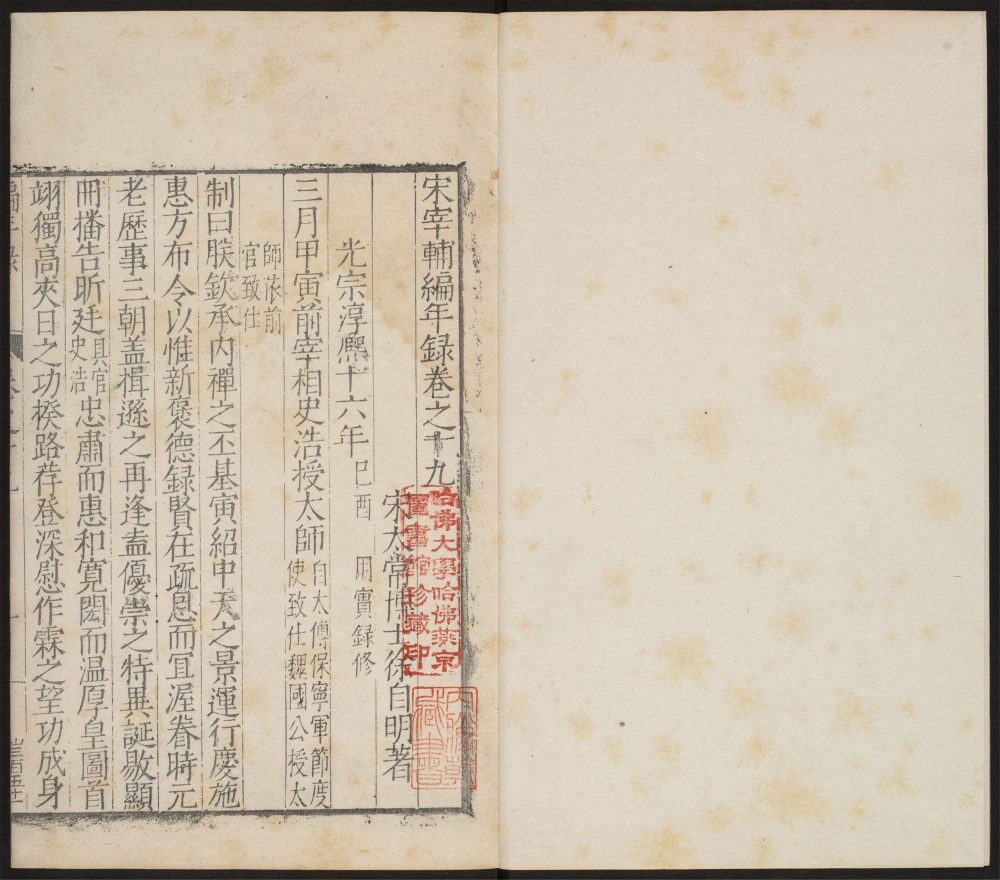 宋宰輔編年録卷之十九
宋太常博士徐自明著
光宗淳熈十六年己酉 用實録修
三月甲寅前宰相史浩授太師自太傅保寧軍節度使致仕魏國公授太
師依前官致仕
制曰朕欽承内禪之丕基寅紹中天之景運行慶施
惠方布令以惟新褒德録賢在疏恩而冝渥眷時元
老歷事三朝盖揖遜之再逢盍優崇之特異誕敭顯
冊播告昕廷具官史浩忠肅而惠和寛閎而温厚皇圖首
翊獨高夾日之功揆路荐登深慰作霖之望功成身
哈佛大學哈佛燕京
圖書館珍藏印
藏書